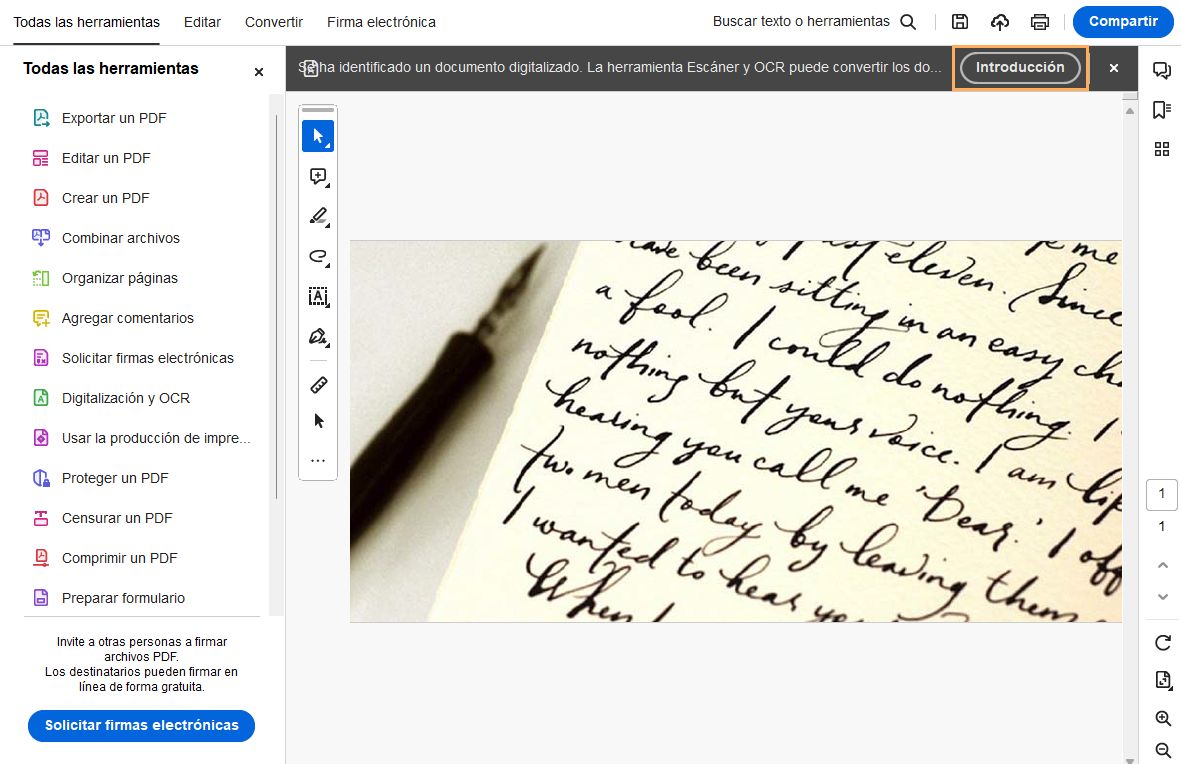 Todas las herramientas
Editar
Convertir
Firma electrónica
Buscar texto o herramientas
Compartir
Todas las herramientas
Exportar un PDF
Editar un PDF
Crear un PDF
Combinar archivos
Organizar páginas
Agregar comentarios
Solicitar firmas electrónicas
Digitalización y OCR
Usar la producción de impre...
Proteger un PDF
Censurar un PDF
Comprimir un PDF
Preparar formulario
Invite a otras personas a firmar
archivos PDF.
Los destinatarios pueden firmar en
línea de forma gratuita.
Solicitar firmas electrónicas
Se ha identificado un documento digitalizado. La herramienta Escáner y OCR puede convertir los do...
Introducción
me
have been sitting in an easy
eleven. Since
a fool. I could do nothing. I
nothing but your voice. I am
hearing you call me 'Dear.' I
two men today by leaving them
I wanted to hear
When I
1
1